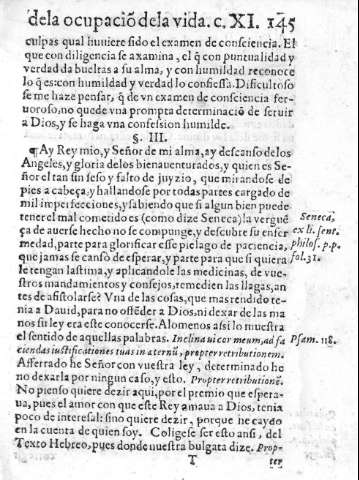 dela ocupaciõ dela vida. c. XI. 145
culpas qual huuiere sido el examen de consciencia. El
que con diligencia se axamina, el q̃ con puntualidad y
verdad da bueltas a su alma, y con humildad reconoce
lo q̃ es: con humildad y verdad lo confiessa. Dificultoso
se me haze pensar, q̃ de vn examen de consciencia fer-
uoroso, no quede vna prompta determinaciõ de seruir
a Dios, y se haga vna confession humilde.
§. III.
¶Ay Rey mio, y Señor de mi alma, ay descanso delos
Angeles, y gloria delos bienauenturados, y quien es Se-
ñor el tan sin seso y falto de juyzio, que mirandose de
pies a cabeça, y hallandose por todas partes cargado de
mil imperfecciones, y sabiendo que si algun bien puede
tener el mal cometido es (como dize Seneca) la verguẽ
ça de auerse hecho no se compunge, y descubre su enfer
medad, parte para glorificar esse pielago de paciencia,
que jamas se cansò de esperar, y parte para que si quiera
le tengan lastima, y aplicandole las medicinas, de vue-
stros mandamientos y consejos, remedien las llagas, an
tes de afistolarse? Vna de las cosas, que mas rendido te-
nia a Dauid, para no offẽder a Dios, ni dexar de las ma
nos su ley era este conocerse. Alomenos assi lo muestra
el sentido de aquellas palabras. Inclinaui cor meum, ad fa
ciendas iustificationes tuas in æternũ, propter retributionem.
Afferrado he Señor con vuestra ley, determinado he
no dexarla por ningun caso, y esto. Propter retributionẽ.
No pienso quiere dezir aqui, por el premio que espera-
ua, pues el amor con que este Rey amaua a Dios, tenia
poco de interesal: sino quiere dezir, porque he caydo
en la cuenta de quien soy. Coligese ser esto ansi, del
Texto Hebreo, pues donde nuestra bulgata dize. Prop-
T ter
Seneca,
ex li. sent.
philos. p. p.
fol. 31.
Psam. 118.